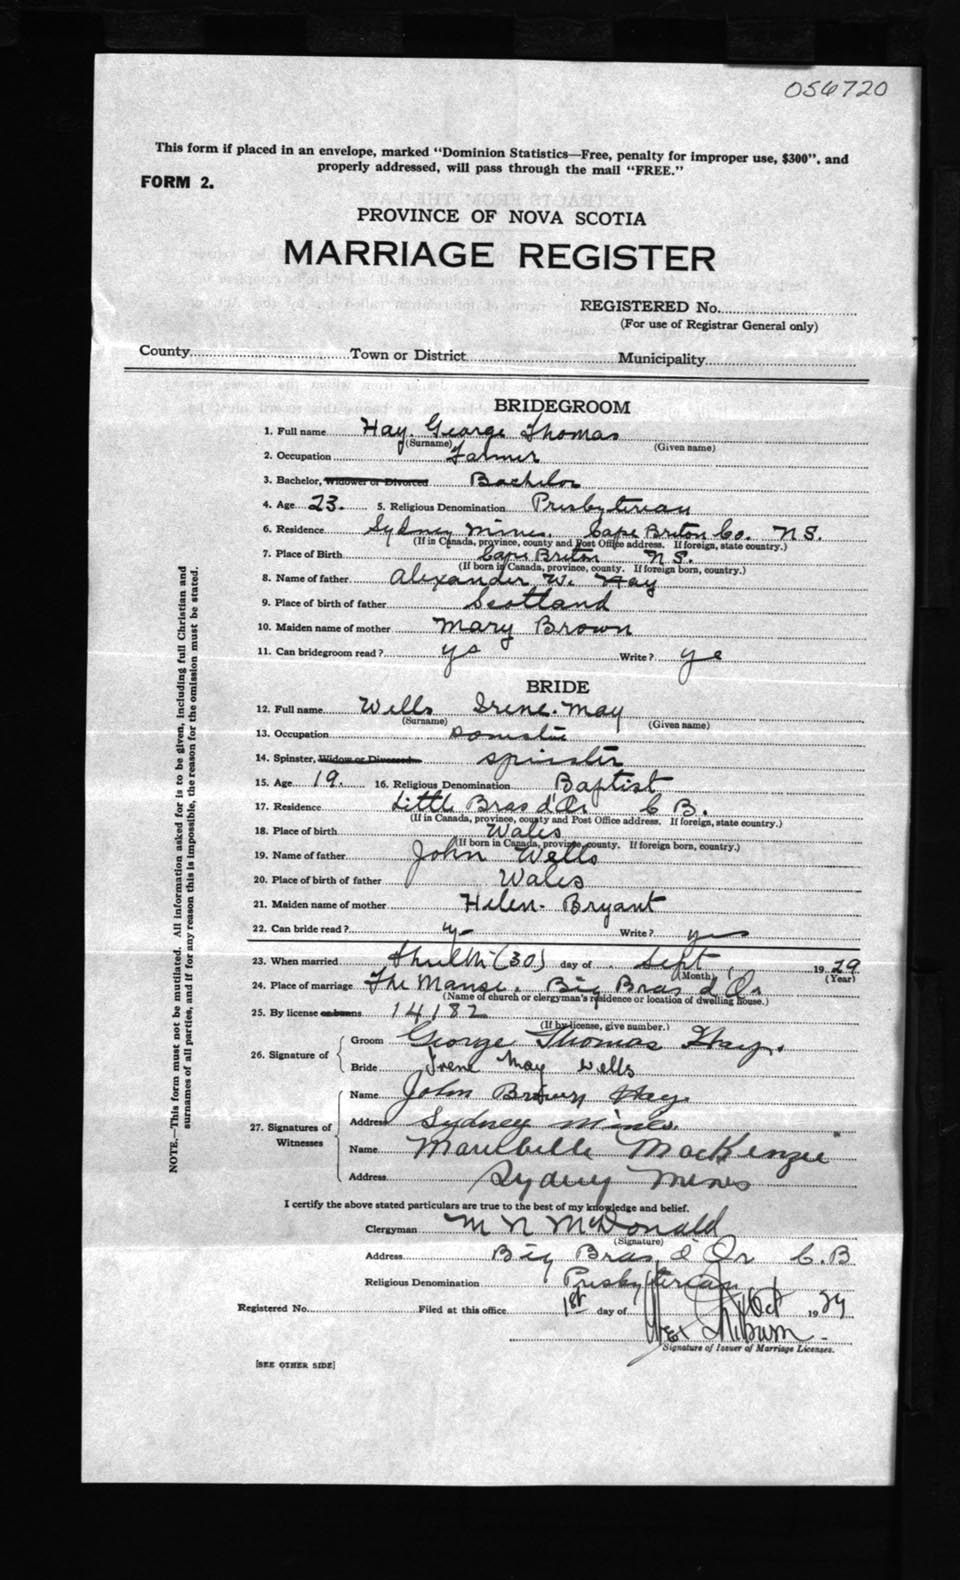 056720
This form if placed in an envelope, marked "Dominion Statistics—Free, penalty for improper use, $300", and
properly addressed, will pass through the mail "FREE."
FORM 2.
PROVINCE OF NOVA SCOTIA
MARRIAGE REGISTER
REGISTERED No.
(For use of Registrar General only)
County Town or District Municipality
BRIDEGROOM
1. Full name Hay. George Thomas
(Surname) (Given name)
2. Occupation Farmer
3. Bachelor, Widower or Divorced Bachelor
4. Age 23. 5. Religious Denomination Presbyterian
6. Residence Sydney Mines. Cape Breton Co. N S.
(If in Canada, province, county and Post Office address. If foreign, state country.)
7. Place of Birth Cape Breton N S.
(If born in Canada, province, county. If foreign born, country.)
8. Name of father Alexander W. Hay
9. Place of birth of father Scotland
10. Maiden name of mother Mary Brown
11. Can bridegroom read? ys Write? ye
BRIDE
12. Full name Wells Irene. May
(Surname) (Given name)
13. Occupation Domestic
14. Spinster, Widow or Divorced Spinster
15. Age 19. 16. Religious Denomination Baptist
17. Residence Little Bras d'Or C B.
(If in Canada, province, county and Post Office address. If foreign, state country.)
18. Place of birth Wales
(If born in Canada, province, county. If foreign born, country.)
19. Name of father John Wells
20. Place of birth of father Wales
21. Maiden name of mother Helen. Bryant
22. Can bride read? Write? yes
23. When married (30) day of Sept 1929
(Month) (Year)
24. Place of marriage The Manse. Big Bras d'Or
(Name of church or clergyman's residence or location of dwelling house.)
25. By license or banns 14182
(If by license, give number.)
26. Signature of
Groom George Thomas Hay.
Bride Irene May Wells
27. Signatures of Witnesses
Name John Brown Hay
Address Sydney Mines.
Name Maribelle MacKenzie
Address Sydney Mines
I certify the above stated particulars are true to the best of my knowledge and belief.
Clergyman M N McDonald
(Signature)
Address Big Bras d'Or C.B
Religious Denomination Presbyterian
Registered No. Filed at this office 1st day of Oct 1929
Signature of Issuer of Marriage Licenses.
[SEE OTHER SIDE]
NOTE.—This form must not be mutilated. All information asked for is to be given, including full Christian and
surnames of all parties, and if for any reason this is impossible, the reason for the omission must be stated.